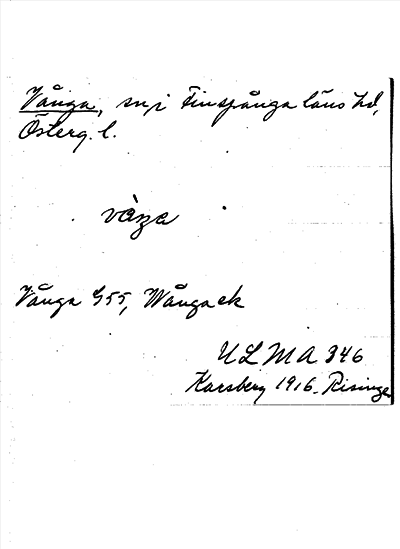 Vånga, sn i Finspånga läns hd,
Österg. l.
våŋa
Vånga G55, Wånga ek
ULMA 346
Karsberg 1916. Risinge